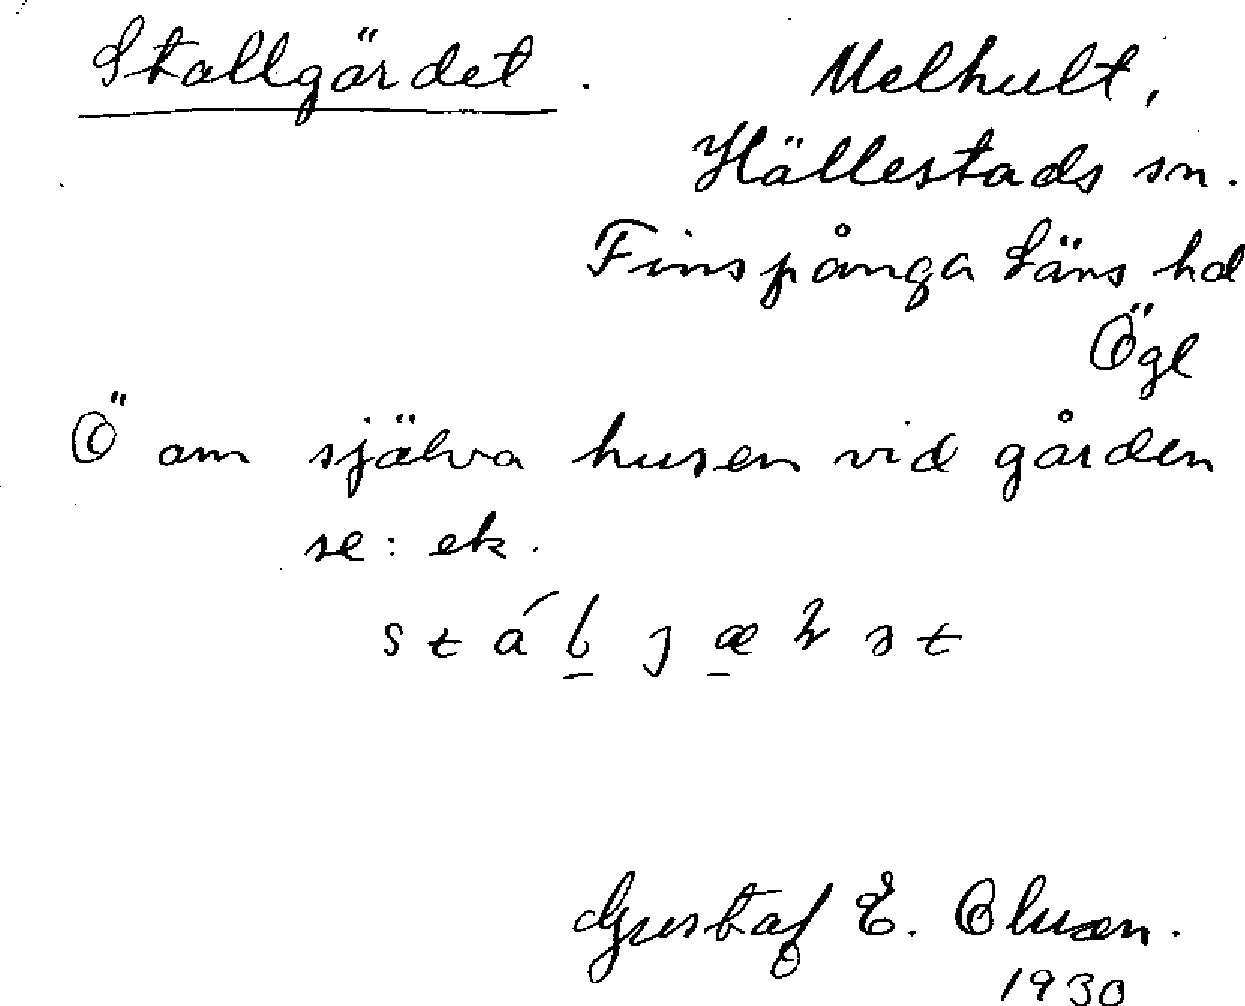 Stallgärdet. Melhult,
Hällestads sn.
Finspånga Läns hd
Ögl
Ö om själva husen vid gården
se: ek.
Gustaf E.
1930